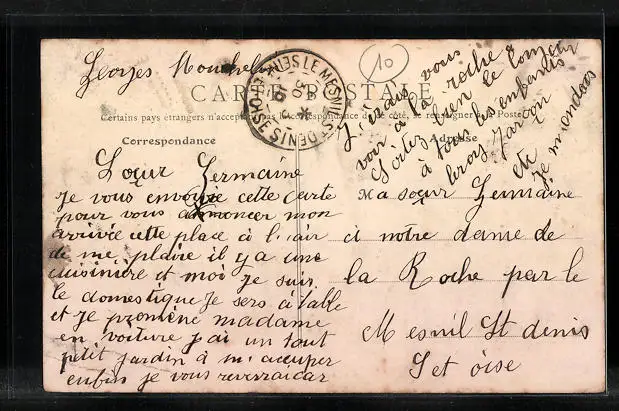 Georges
10
LE MESNIL ST DENIS SEINE-ET-OISE
30
CARTE POSTALE
Certains pays étrangers n'acceptent pas la correspondance de ce côté, se renseigner à la Poste
Correspondance
Adresse
Sœur Germaine
je vous envoie cette carte
pour vous annoncer mon
arrivée cette place à l'air
de me plaire il y a une
cuisinière et moi je suis
le domestique je sers à table
et je promène madame
en voiture j'ai un tout
petit jardin à m'accuper
enfin je vous
J'irais vous
voir à la roche
bien le
à tous les enfants
garçon
etc
je
Ma sœur Germaine
à notre dame de
la Roche par le
Mesnil St denis
S et oise